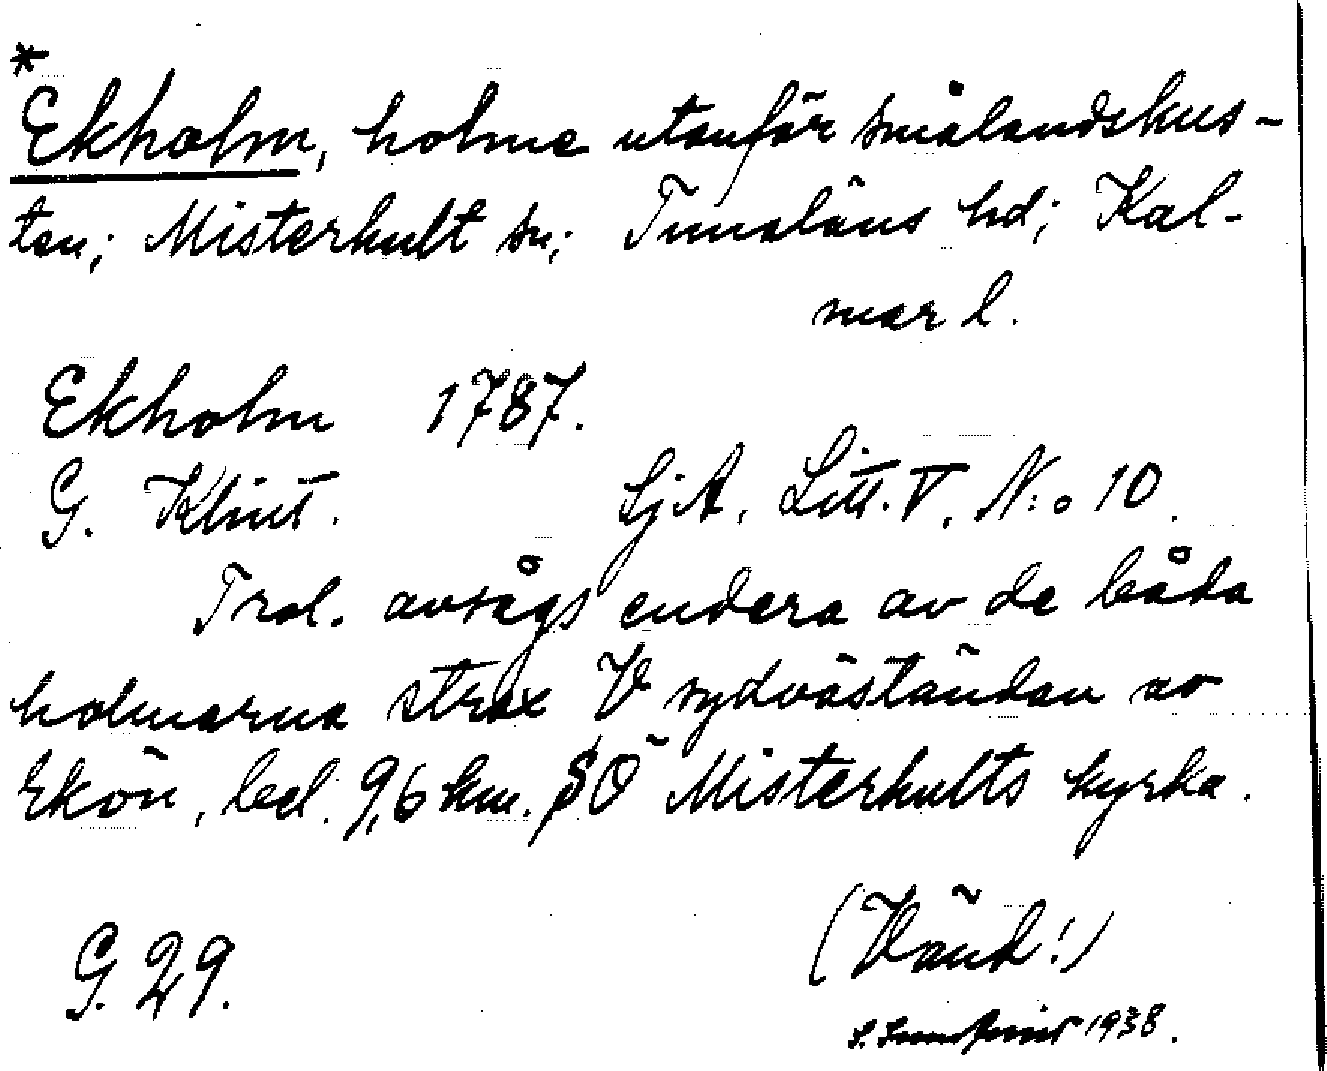 *
Ekholm, holme utanför smålandskus-
ten; Misterhult sn; Tunaläns hd; Kal-
mar l.
Ekholm 1787.
G. Klint. SjA, Litt. V, N:o 10.
Trol. avsågs endera av de båda
holmarna strax V sydväständan av
Ekön, bel. 9,6 km. SÖ Misterhults kyrka.
(Vänd!)
G. 29.
S. Sundqvist 1938.